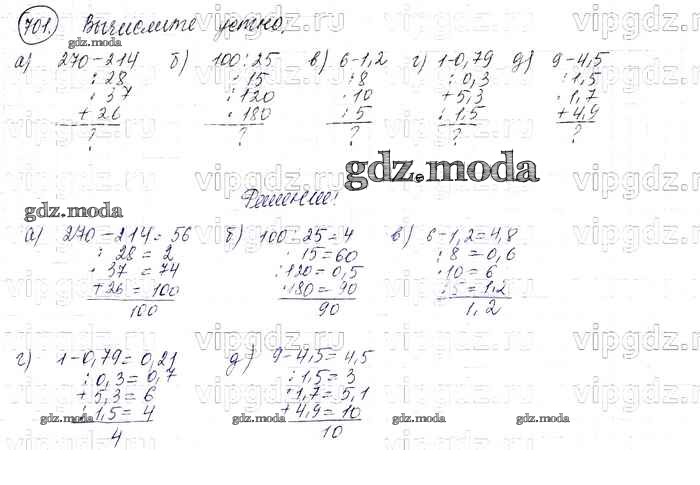 701. Вычислите устно.
а) 270-214 б) 100:25 в) 6-1,2 г) 1-0,79 д) 9-4,5
:28 ·15 :8 :0,3 :1,5
·37 :120 ·10 +5,3 ·1,7
+26 ·180 :5 :1,5 +4,9
? ? ? ? ?
gdz.moda
Решение:
gdz.moda
а) 270-214=56 б) 100:25=4 в) 6-1,2=4,8
:28=2 ·15=60 :8=0,6
·37=74 :120=0,5 ·10=6
+26=100 ·180=90 :5=1,2
100 90 1,2
г) 1-0,79=0,21 д) 9-4,5=4,5
:0,3=0,7 :1,5=3
+5,3=6 ·1,7=5,1
:1,5=4 +4,9=10
4 10
gdz.moda gdz.moda gdz.moda gdz.moda
vipgdz.com